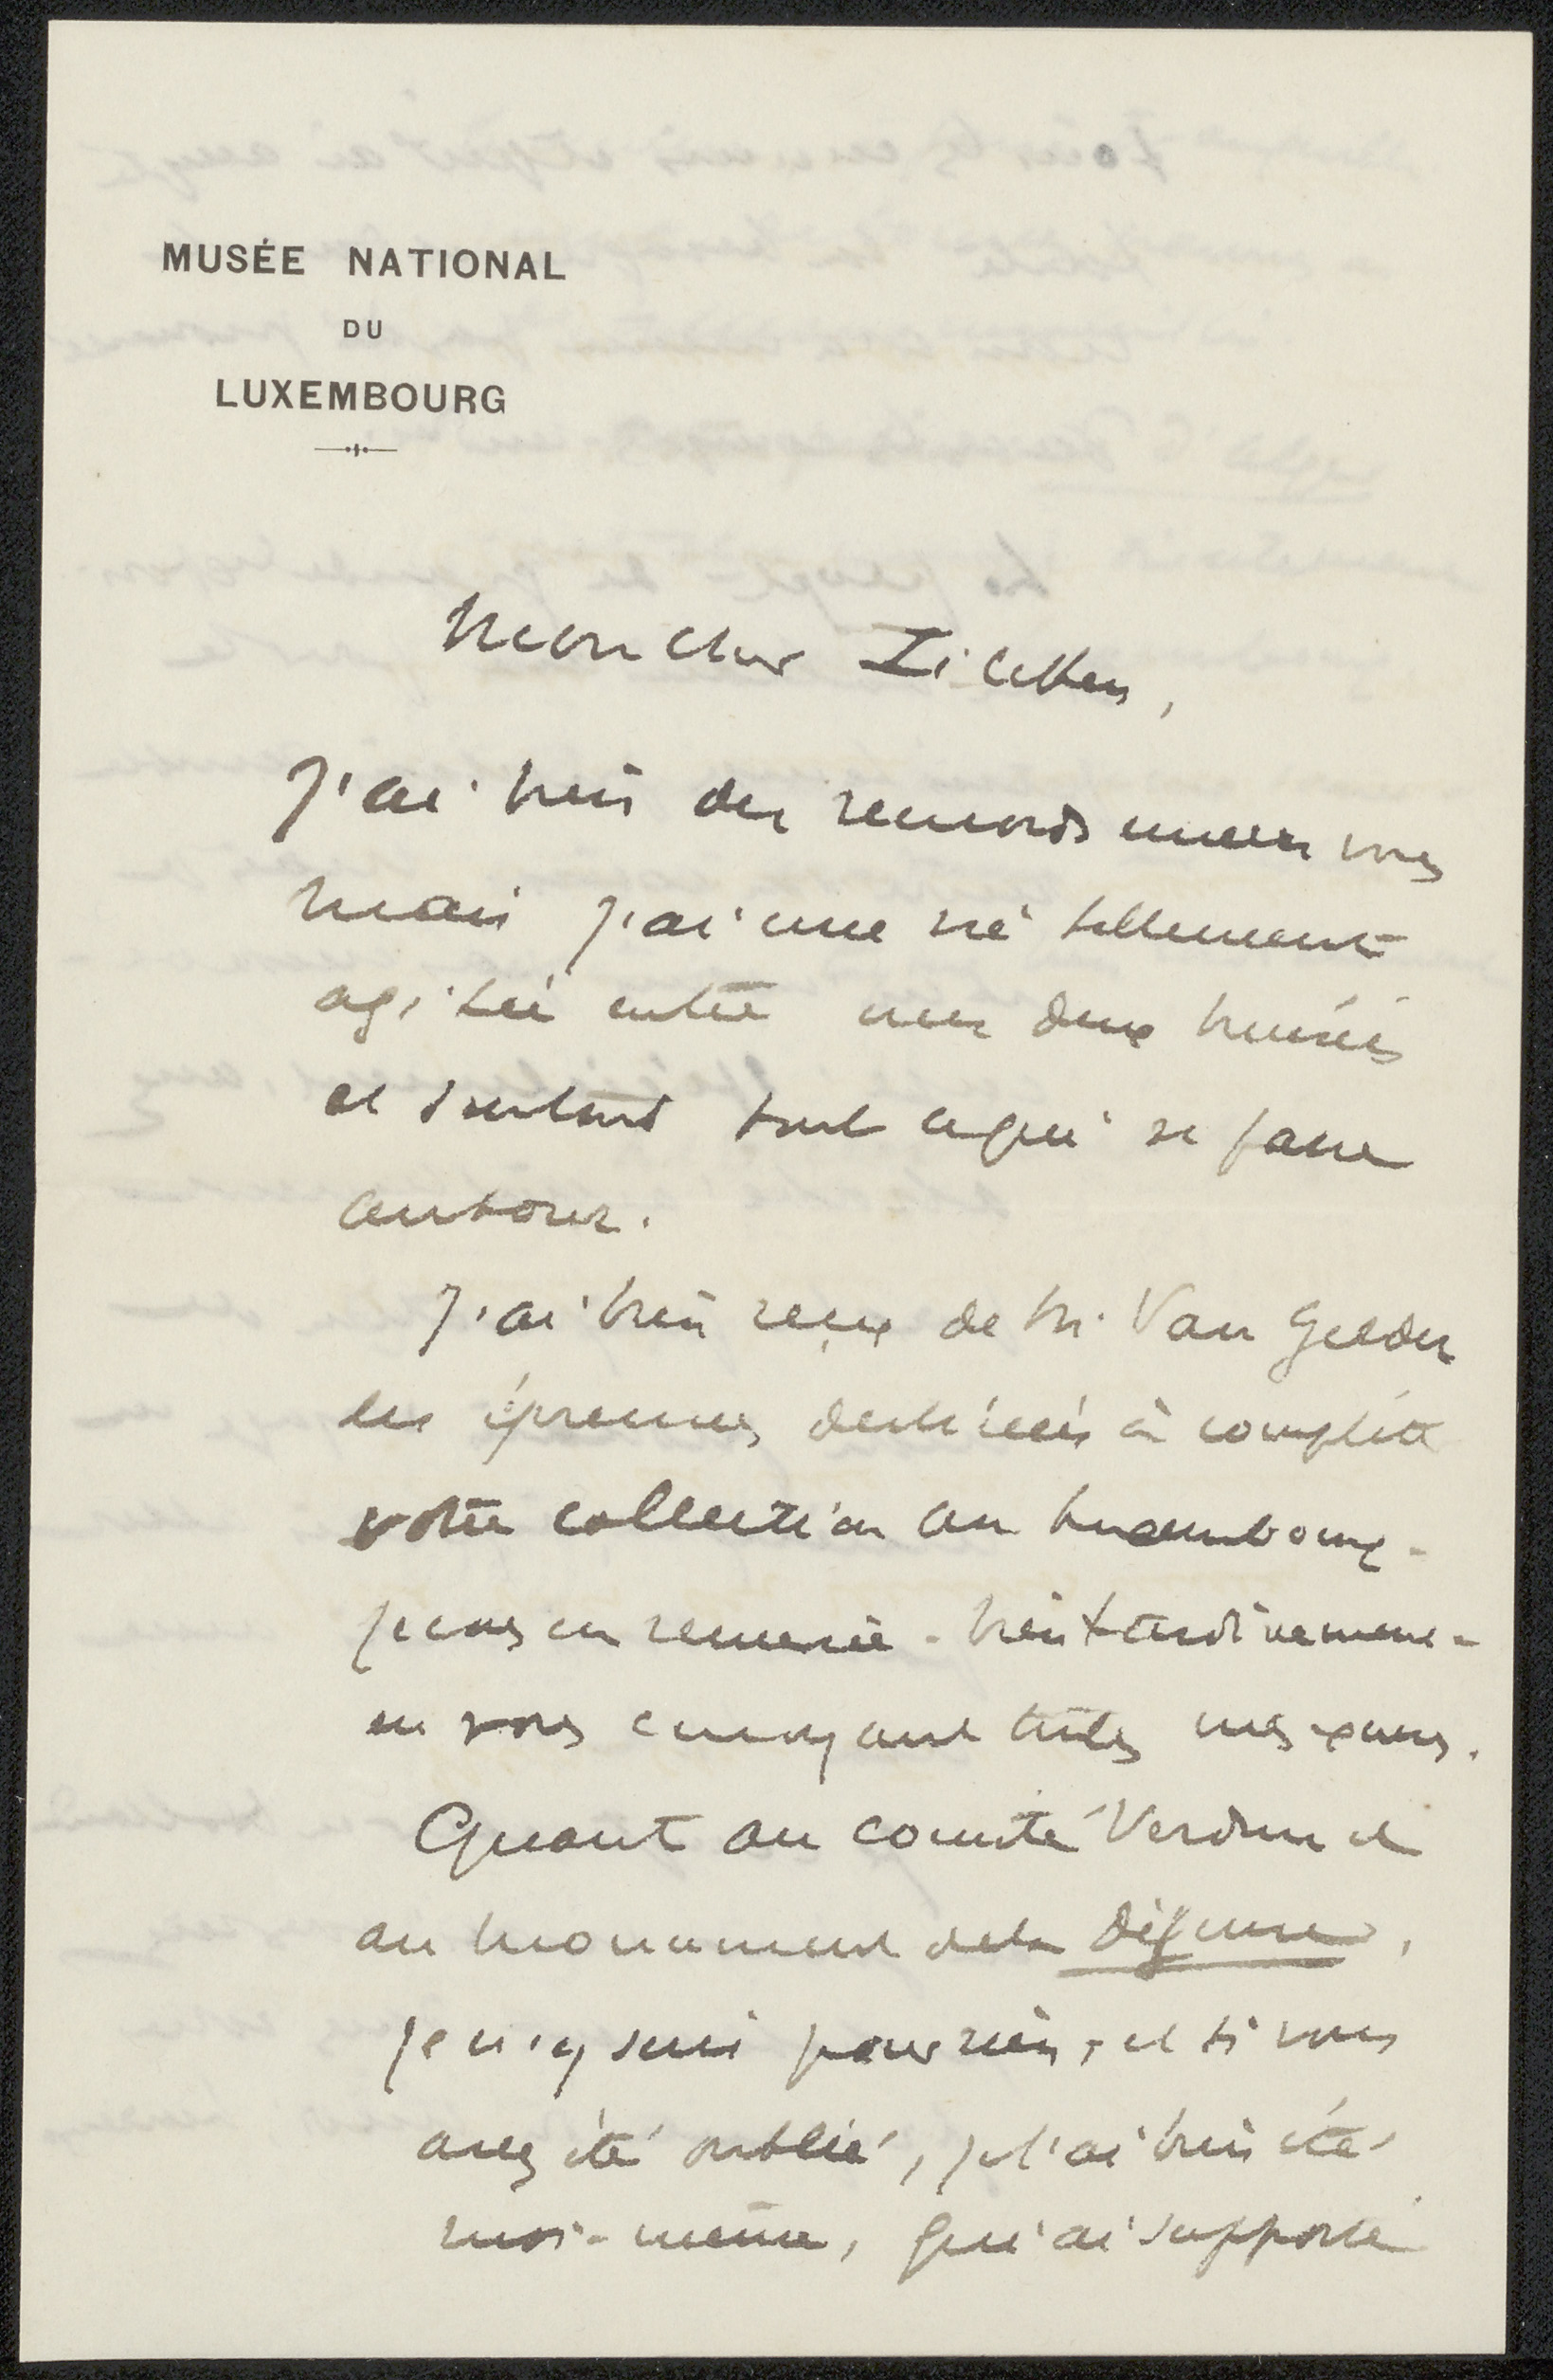 MUSÉE NATIONAL
DU
LUXEMBOURG
Mon cher Zilcken,
J'ai bien des remords envers vous
mais j'ai une vie tellement
agitée entre mes deux musées
et surtout tout ce qui se passe
autour.
J'ai bien reçu de M. Van Gelder
les épreuves destinées à compléter
votre collection au Luxembourg.
Je vous en remercie - bien tardivement -
en vous envoyant toutes mes excuses.
Quant au comité Verdun et
au monument de la Défense,
je n'y suis pour rien, et si vous
avez été oublié, je l'ai bien été
moi-même, qui ai supporté